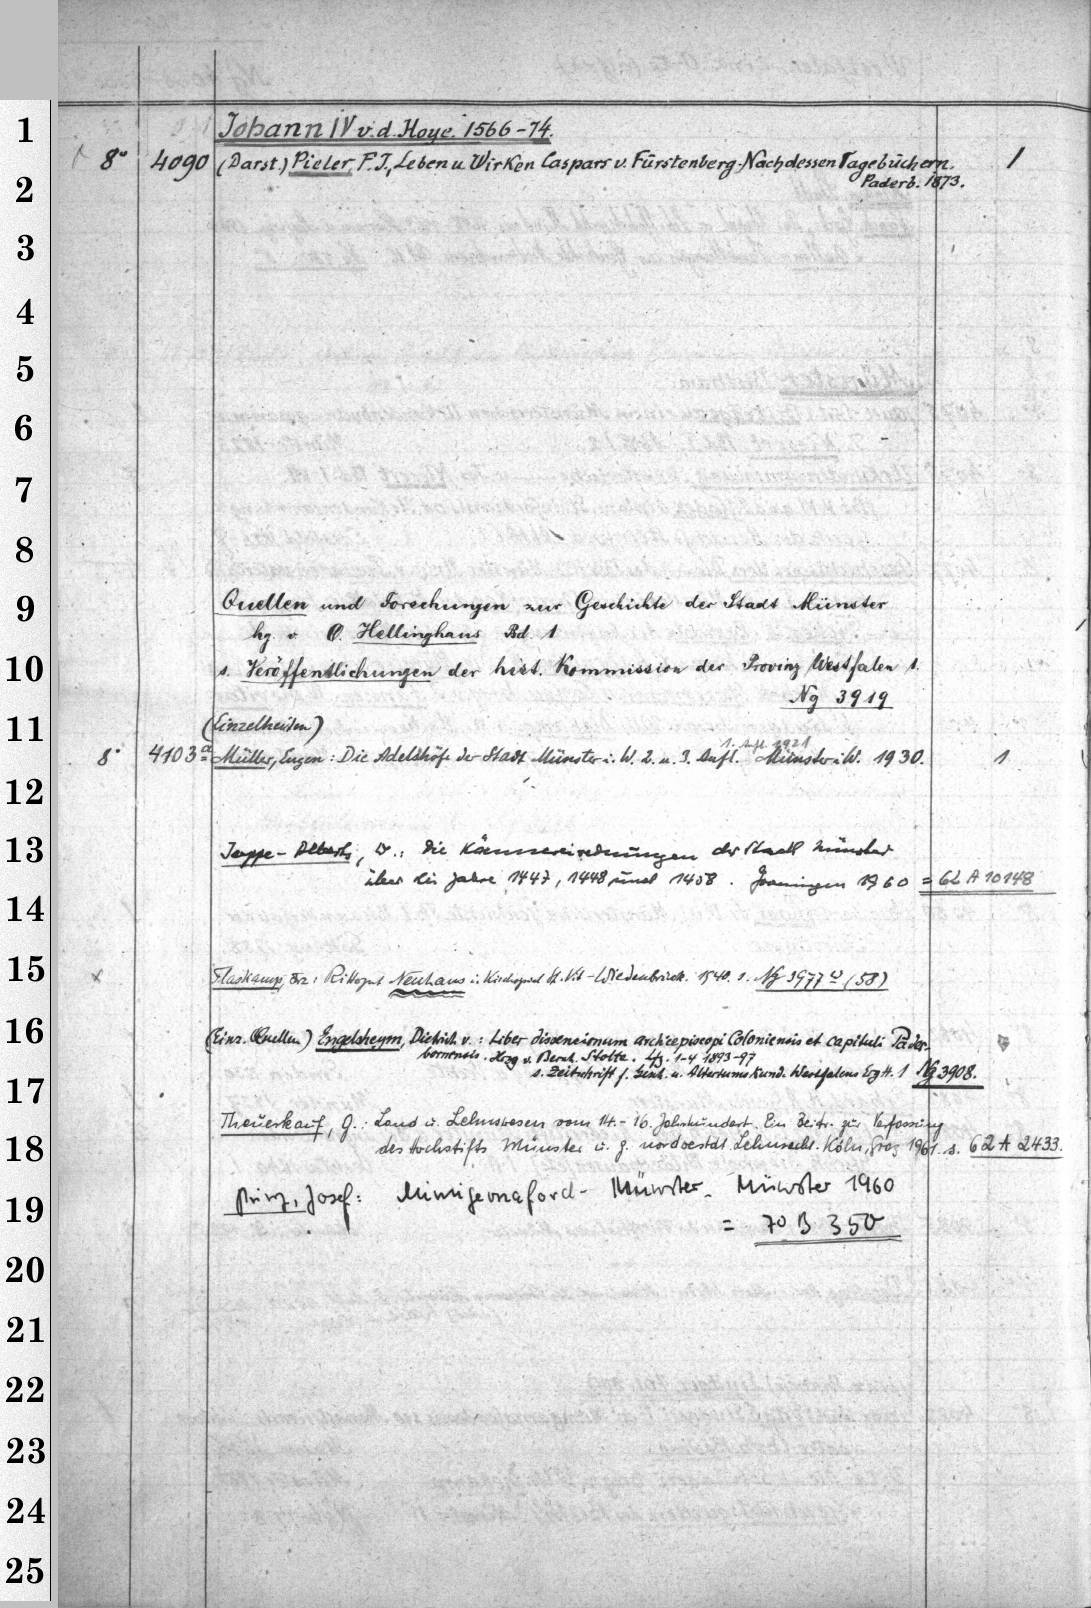 1 Johann IV v. d. Hoye. 1566-74.
8° 4090 (Darst.) Pieler, F. J., Leben u. Wirken Caspars v. Fürstenberg. Nach dessen Tagebüchern. 1
2 Paderb. 1873.
3
4
5
6
7
8
9 Quellen und Forschungen zur Geschichte der Stadt Münster
hg. v. O. Hellinghaus Bd 1
10 s. Veröffentlichungen der hist. Kommission der Provinz Westfalen 1.
Ng 3919
11 (Einzelheiten)
1. Aufl. 1921
8° 4103a Müller, Eugen: Die Adelshöfe der Stadt Münster i. W. 2. u. 3. Aufl. Münster i. W. 1930. 1
12
13 Jappe-Alberts, W.: Die Kämmereirechnungen der Stadt Münster
über die Jahre 1447, 1448 und 1458. Groningen 1960 = 62 A 10148
14
15 Flaskamp, Frz: Rittergut Neuhaus i. Kirchspiel St. Vit-Wiedenbrück. 1940. s. Ng 3977 (58)
16 (Einz. Quellen) Engelsheym, Dietrich v.: Liber dissencionum archiepiscopi Coloniensis et capituli Pader-
bornensis. Hrsg v. Bernh. Stolte. Lfg. 1-4 1893-97
17 s. Zeitschrift f. Gesch. u. Altertumskund. Westfalens Erg H. 1 Ng 3908.
Theuerkauf, G.: Land u. Lehnswesen vom 14.-16. Jahrhundert. Ein Beitr. zur Verfassung
18 des Hochstifts Münster u. z. nordwestdt. Lehnrecht. Köln, Graz 1961. s. 62 A 2433.
19 Prinz, Josef: Mimigernaford-Münster. Münster 1960
= 70 B 350
20
21
22
23
24
25